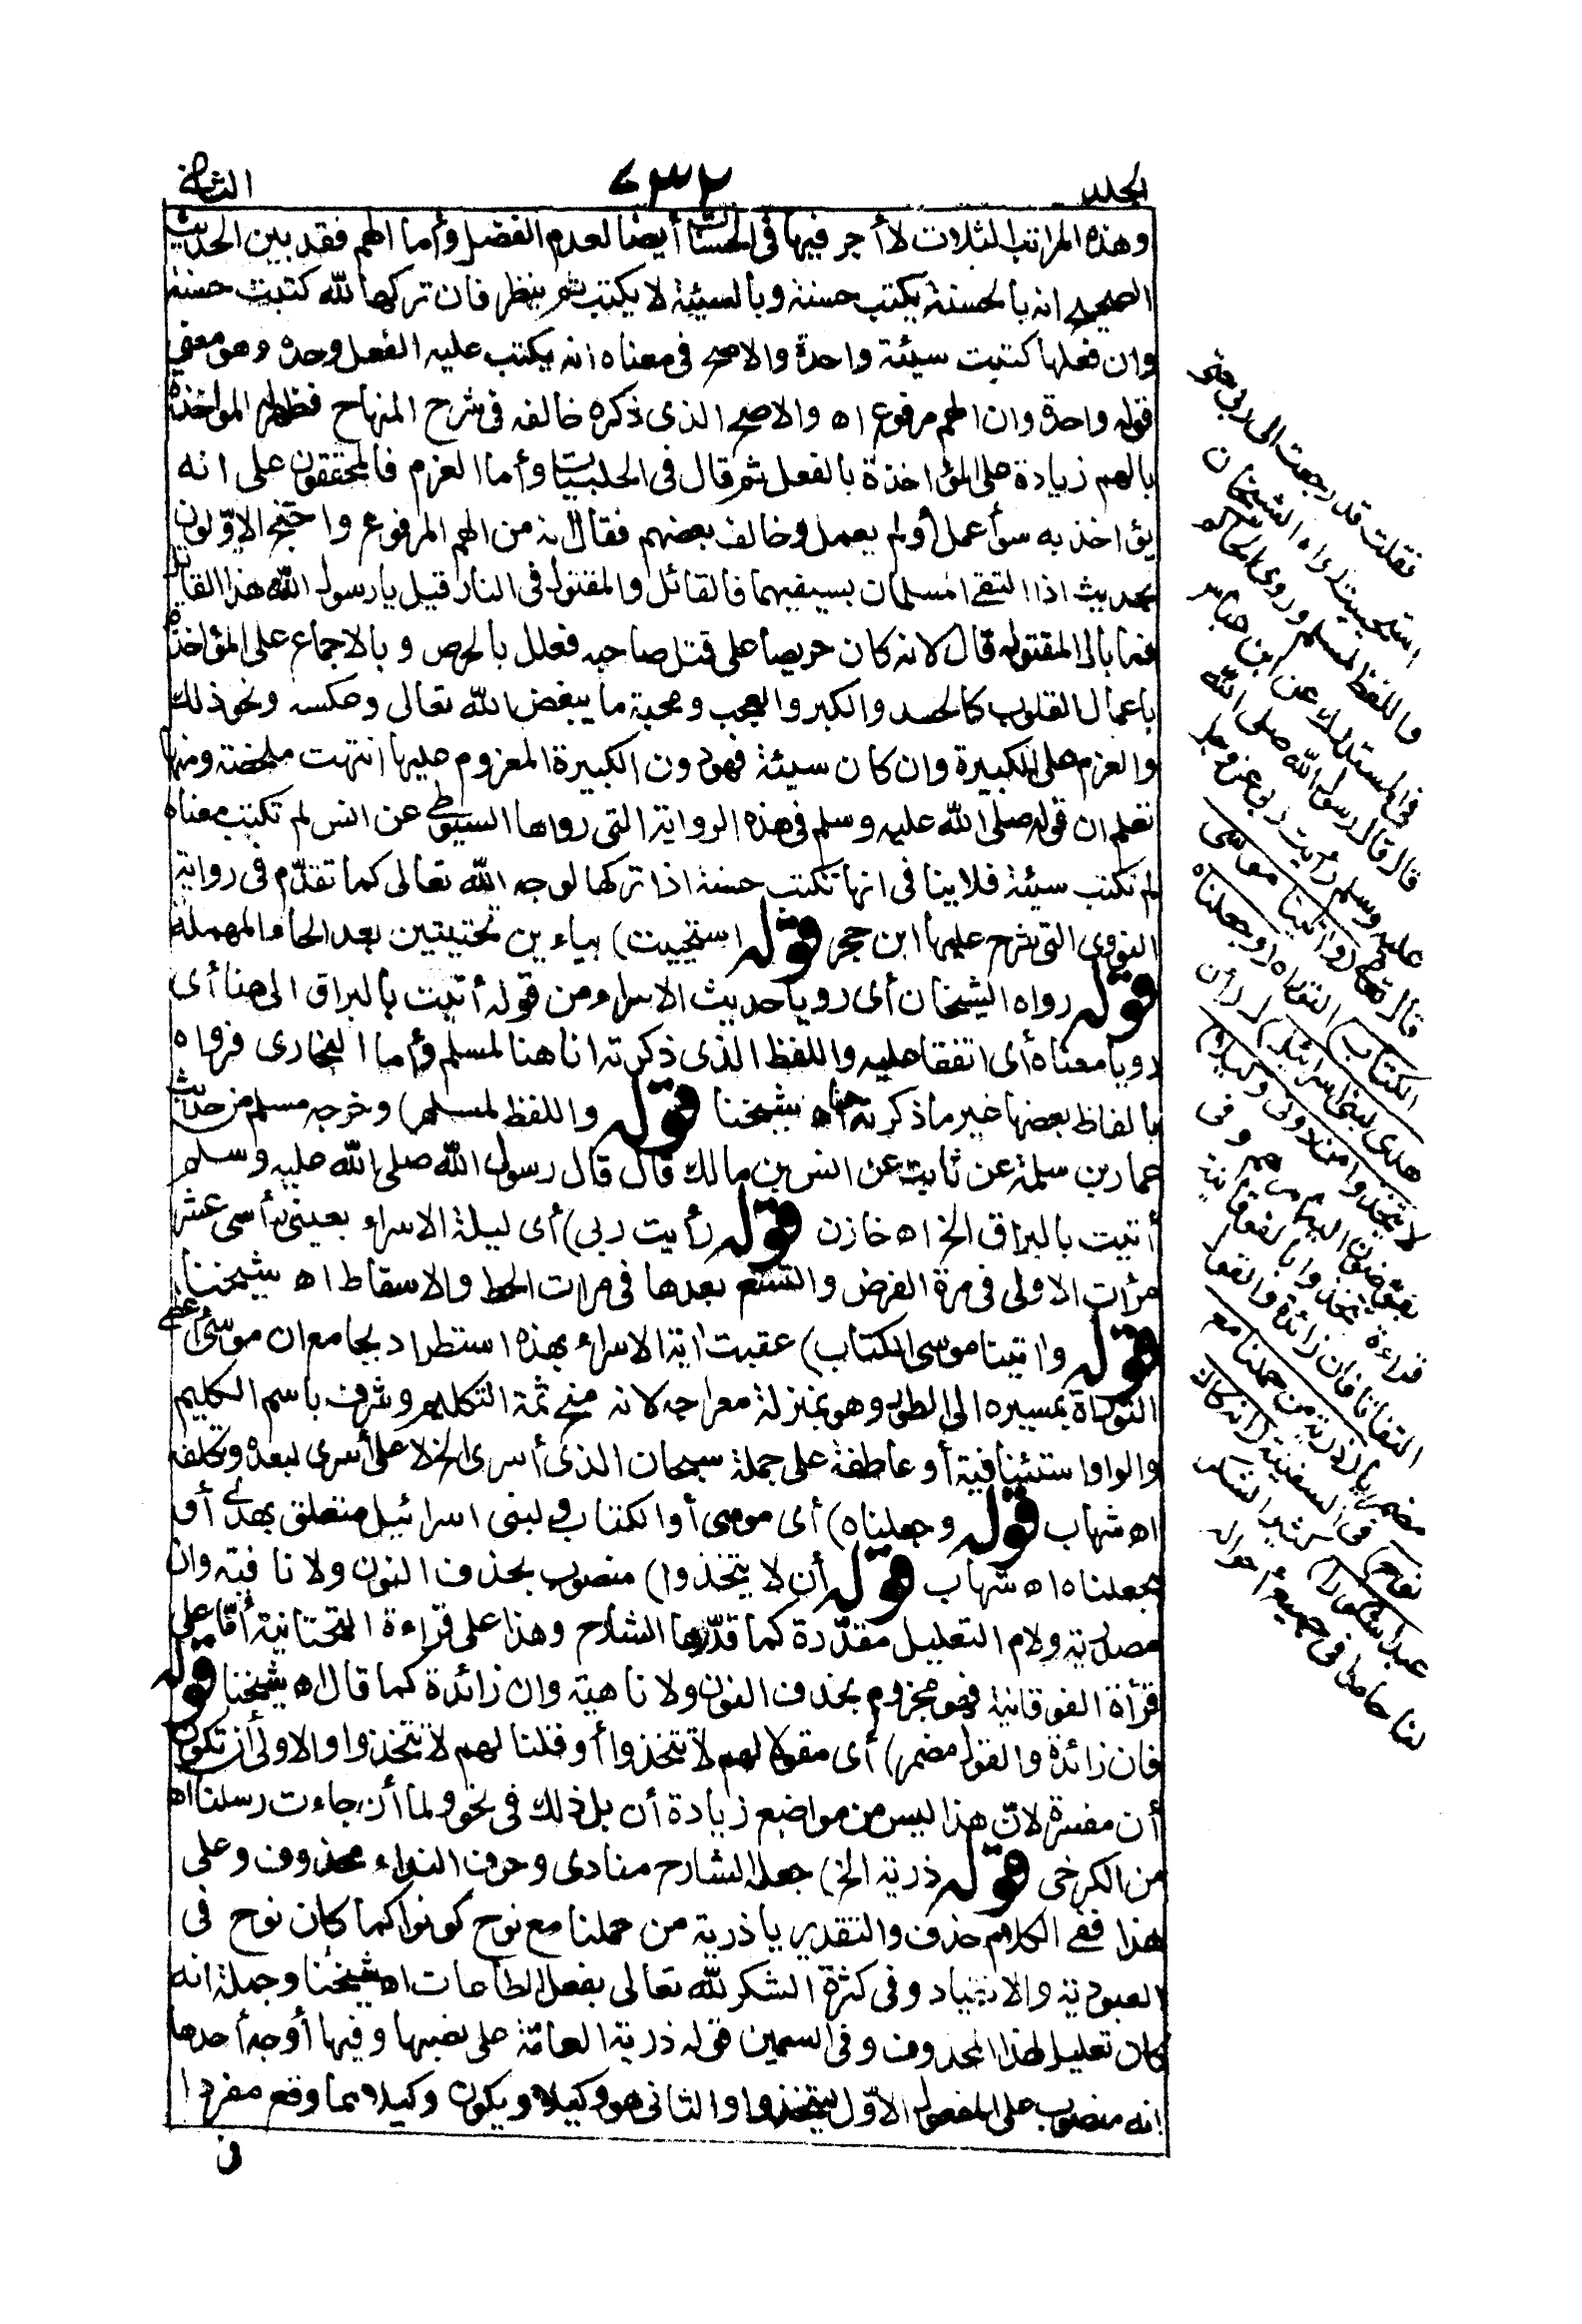 الجلد ٦٣٢ الثاني
وهذه المراتب الثلاث لا أجر فيها فى الحسنات أيضا لعدم القصد وأما الهم فقد بين الحديث
الصحيح انه بالحسنة يكتب حسنة وبالسيئة لا يكتب ثم ينظر فان تركها لله كتبت حسنة
وان فعلها كتبت سيئة واحدة والاصح فى معناه انه يكتب عليه الفعل وحده وهو معنى
قوله واحدة وان الهم مرفوع اه والاصح الذى ذكره خالفه فى شرح المنهاج فظهر المؤاخذة
بالهم زيادة على المؤاخذة بالفعل ثم قال فى الحلبيات وأما العزم فالمحققون على انه
يؤاخذ به سواء عمل أو لم يعمل وخالف بعضهم فقال انه من الهم المرفوع واحتج الاوّلون
بحديث اذا التقى المسلمان بسيفيهما فالقاتل والمقتول فى النار قيل يا رسول الله هذا القاتل
فما بال المقتول قال لانه كان حريصا على قتل صاحبه فعلل بالحرص وبالاجماع على المؤاخذة
باعمال القلوب كالحسد والكبر والعجب ومحبة ما يبغض الله تعالى وعكسه ونحو ذلك
والعزم على الكبيرة وان كان سيئة فهو دون الكبيرة المعزوم عليها انتهت ملخصة ومنها
تعلم ان قوله صلى الله عليه وسلم فى هذه الرواية التى رواها السيوطى عن انس لم تكتب معناه
لم تكتب سيئة فلا ينافى انها تكتب حسنة اذا تركها لوجه الله تعالى كما تقدّم فى رواية
النووى التى شرح عليها ابن حجر قوله استحييت) بياءين تحتيتين بعد الحاء المهملة
قوله رواه الشيخان أى رويا حديث الاسراء من قوله أتيت بالبراق الى هنا أى
رويا معناه أى اتفقا عليه واللفظ الذى ذكرته انا هنا لمسلم وأما البخارى فرواه
بالفاظ بعضها غير ما ذكرته هنا اه شيخنا قوله واللفظ لمسلم) وخرجه مسلم من حديث
حماد بن سلمة عن ثابت عن انس بن مالك قال قال رسول الله صلى الله عليه وسلم
أتيت بالبراق الخ اه خازن قوله رأيت ربى) أى ليلة الاسراء بعينى رأسى عشر
مرّات الاولى فى مرة الفرض والتسع بعدها فى مرات الحط والاسقاط اه شيخنا
قوله واتينا موسى الكتاب) عقبت اية الاسراء بهذه استطراد بجامع ان موسى أعطى
التوراة بمسيره الى الطور وهو بمنزلة معراجه لانه منح ثمة التكليم وشرف باسم الكليم
والواو استئنافية أو عاطفة على جملة سبحان الذى أسرى الخ لا على أسرى لبعده وتكلفه
اه شهاب قوله وجعلناه) أى موسى أو الكتاب ولبنى اسرائيل متعلق بهدى أو
بجعلناه اه شهاب قوله أن لا يتخذوا) منصوب بحذف النون ولا نافية وان
مصدرية ولام التعليل مقدّرة كما قدّرها الشارح وهذا على قراءة التحتانية أمّا على
قرأة الفوقانية فهو مجزوم بحذف النون ولا ناهية وان زائدة كما قال اه شيخنا قوله
فان زائدة والقول مضمر) أى مقولا لهم لا تتخذوا أو قلنا لهم لا تتخذوا والاولى أن تكون
أن مفسرة لانّ هذا ليس من مواضع زيادة أن بل ذلك فى نحو ولما أن جاءت رسلنا اه
من الكرخى قوله ذرية الخ) جعله الشارح منادى وحرف النداء محذوف وعلى
هذا ففى الكلام حذف والتقدير يا ذرية من حملنا مع نوح كونوا كما كان نوح فى
العبودية والانقياد وفى كثرة الشكر لله تعالى بفعل الطاعات اه شيخنا وجملة انه
كان تعليل لهذا المحذوف وفى السمين قوله ذرية العامّة على نصبها وفيها أوجه أحدها
انه منصوب على المفعول الاوّل ليتخذوا والثانى هو وكيلا ويكون وكيلا مما وقع مفردا
فقلت قد رجعت الى ربى حتى
استحييت رواه الشيخان
واللفظ لمسلم وروى الحاكم
فى المستدرك عن ابن عباس
قال قال رسول الله صلى الله
عليه وسلم رأيت ربى عز وجل
قال تعالى (واتينا موسى
الكتاب) التوراة (وجعلناه
هدى لبنى اسرائيل) لـ(أن
لا يتخذوا من دونى وكيلا)
يفوضون اليه امرهم وفى
قراءة تتخذوا بالفوقانية
التفاتا فان زائدة والقول
مضمر يا (ذرية من حملنا مع
نوح) فى السفينة (انه كان
عبدا شكورا) كثير الشكر
لنا حامدا فى جميع أحواله